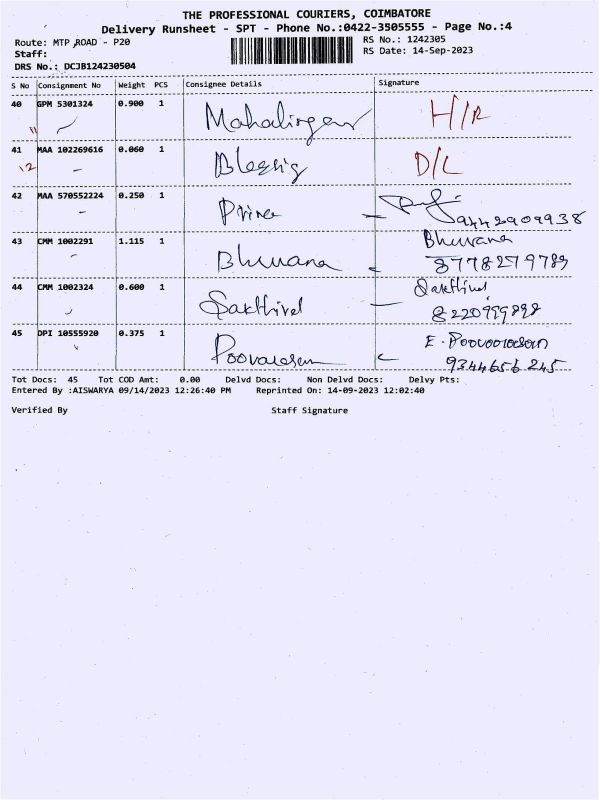 THE PROFESSIONAL COURIERS, COIMBATORE
Delivery Runsheet - SPT - Phone No.:0422-3505555 - Page No.:4
Route: MTP ROAD - P20
RS No.: 1242305
Staff:
RS Date: 14-Sep-2023
DRS No.: DCJB124230504
S No Consignment No Weight PCS Consignee Details Signature
40 GPM 5301324 0.900 1 Mahalingam H/R
11
41 MAA 102269616 0.060 1 Blessig D/L
12
42 MAA 570552224 0.250 1 Prince
9442909938
43 CMM 1002291 1.115 1 Bhuvana Bhuvana
8778279789
44 CMM 1002324 0.600 1 Sakthivel Sakthivel
8220999898
45 DPI 10555920 0.375 1 Poovarasan E. Poovarasan
9344656245
Tot Docs: 45 Tot COD Amt: 0.00 Delvd Docs: Non Delvd Docs: Delvy Pts:
Entered By :AISWARYA 09/14/2023 12:26:40 PM Reprinted On: 14-09-2023 12:02:40
Verified By Staff Signature